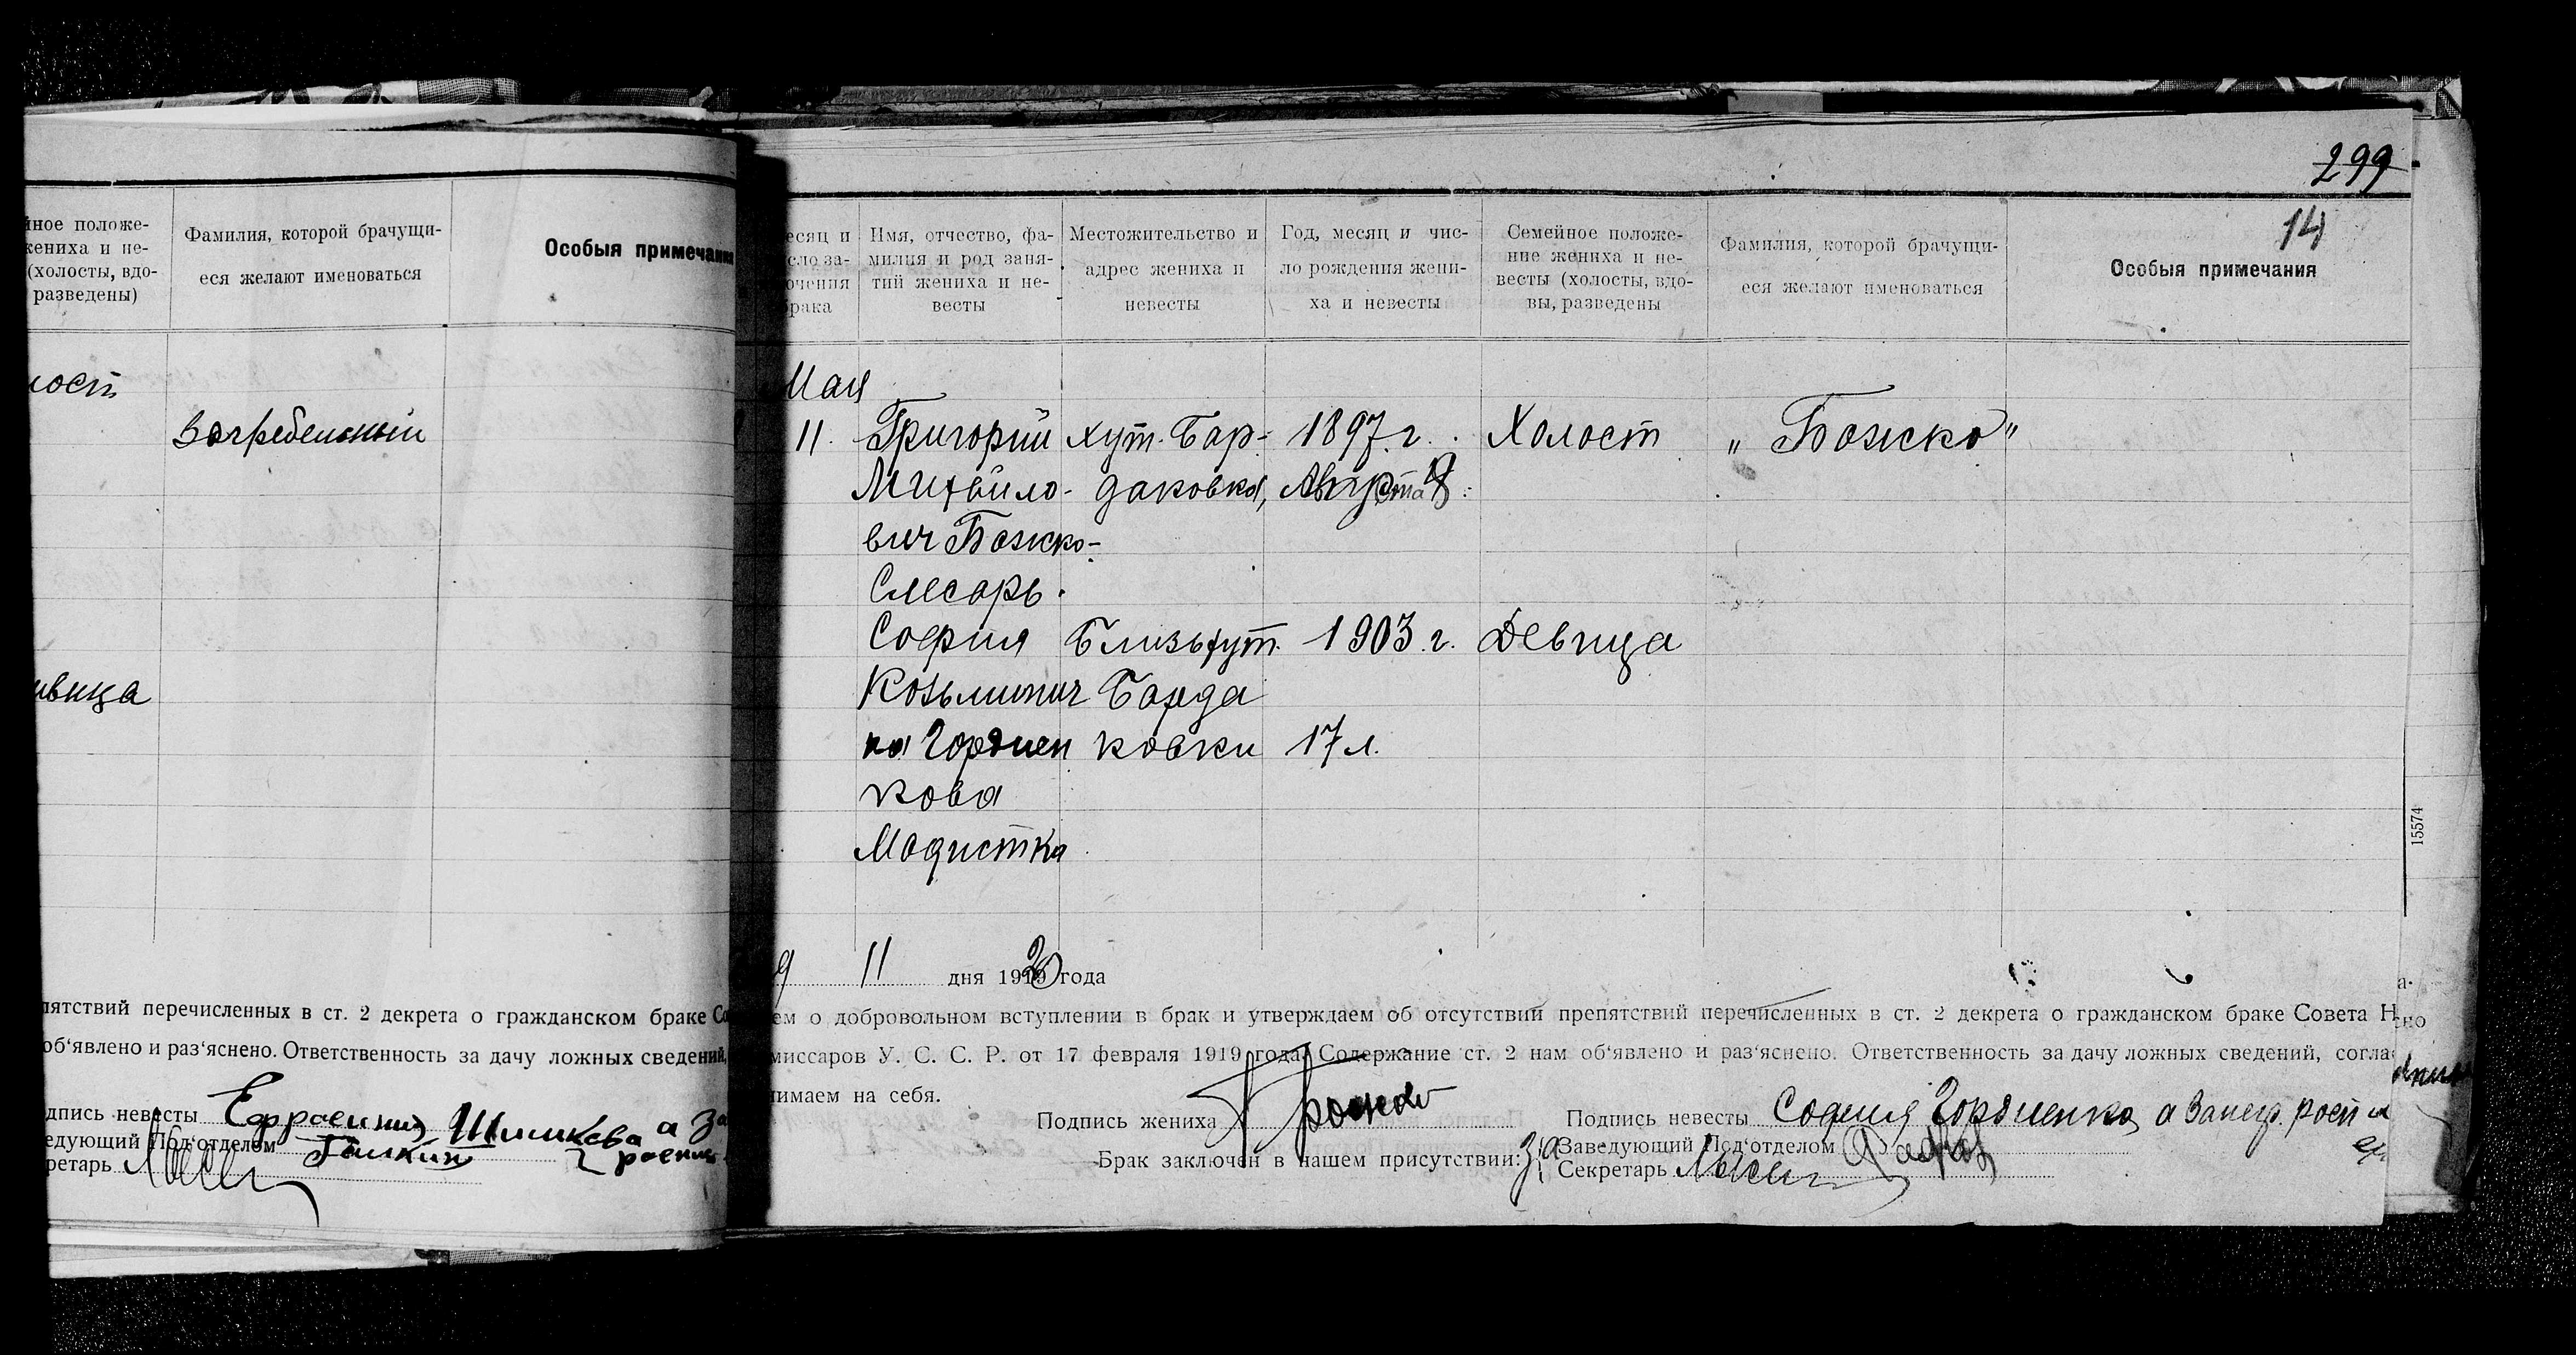 ное положе-
жениха и не-
(холосты, вдо-
разведены)
Фамилия, которой брачущи-
еся желают именоваться
Особыя примечани
лост
Загребельный
ивица
пятствий перечисленных в ст. 2 декрета о гражданском браке Со
об‘явлено и раз‘яснено. Ответственность за дачу ложных сведений,
дпись невесты Ефросиния Шишкова а за
едующий Под‘отделом
ретарь
299
14
есяц и
сло за-
ючения
брака
Имя, отчество, фа-
милия и род заня-
тий жениха и не-
весты
Местожительство и
адрес жениха и
невесты
Год, месяц и чис-
ло рождения жени-
ха и невесты
Семейное положе-
ние жениха и не-
весты (холосты, вдо-
вы, разведены
Фамилия, которой брачущи-
еся желают именоваться
Особыя примечания
Мая
11. Григорий хут. Бар- 1897 г. Холост „Божко”
Михайло- даковка, Августа
вич Божко-
Слесарь.
София Близь хут. 1903 г. Девица
Козьминич Барда
на Гордиен ковки 17 л.
кова
Модистка
9 11 дня 1920 года
ем о добровольном вступлении в брак и утверждаем об отсутствии препятствий перечисленных в ст. 2 декрета о гражданском браке Совета Н
миссаров У. С. С. Р. от 17 февраля 1919 года. Содержание ст. 2 нам об‘явлено и раз‘яснено. Ответственность за дачу ложных сведений, согла
нимаем на себя.
Подпись жениха Подпись невесты София Гордиенко, а
Брак заключен в нашем присутствии: За Заведующий Под‘отделом
Секретарь
15574